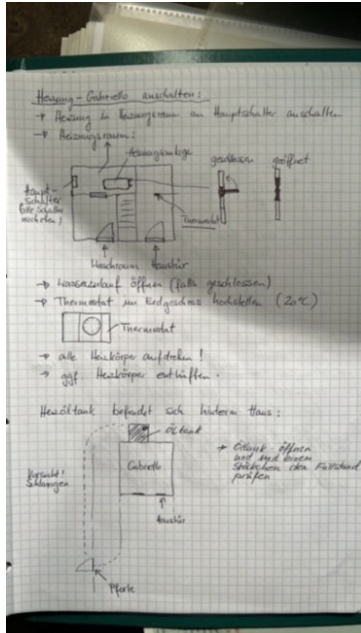 Heizung-Gabriello anschalten:
→ Heizung im Heizungsraum am Hauptschalter anschalten
→ Heizungsraum:
Heizungsanlage
geschlossen
geöffnet
Haupt-
schalter
Thermostat
Waschraum
Haustür
→ Wasserzulauf öffnen (falls geschlossen)
→ Thermostat im Erdgeschoss hochstellen (20°C)
Thermostat
→ alle Heizkörper aufdrehen!
→ ggf. Heizkörper entlüften.
Heizöltank befindet sich hinterm Haus:
Öltank
Gabriello
Vorsicht!
Schlangen
→ Öltank öffnen
und mit einem
Stöckchen den Füllstand
prüfen
Haustür
Pforte